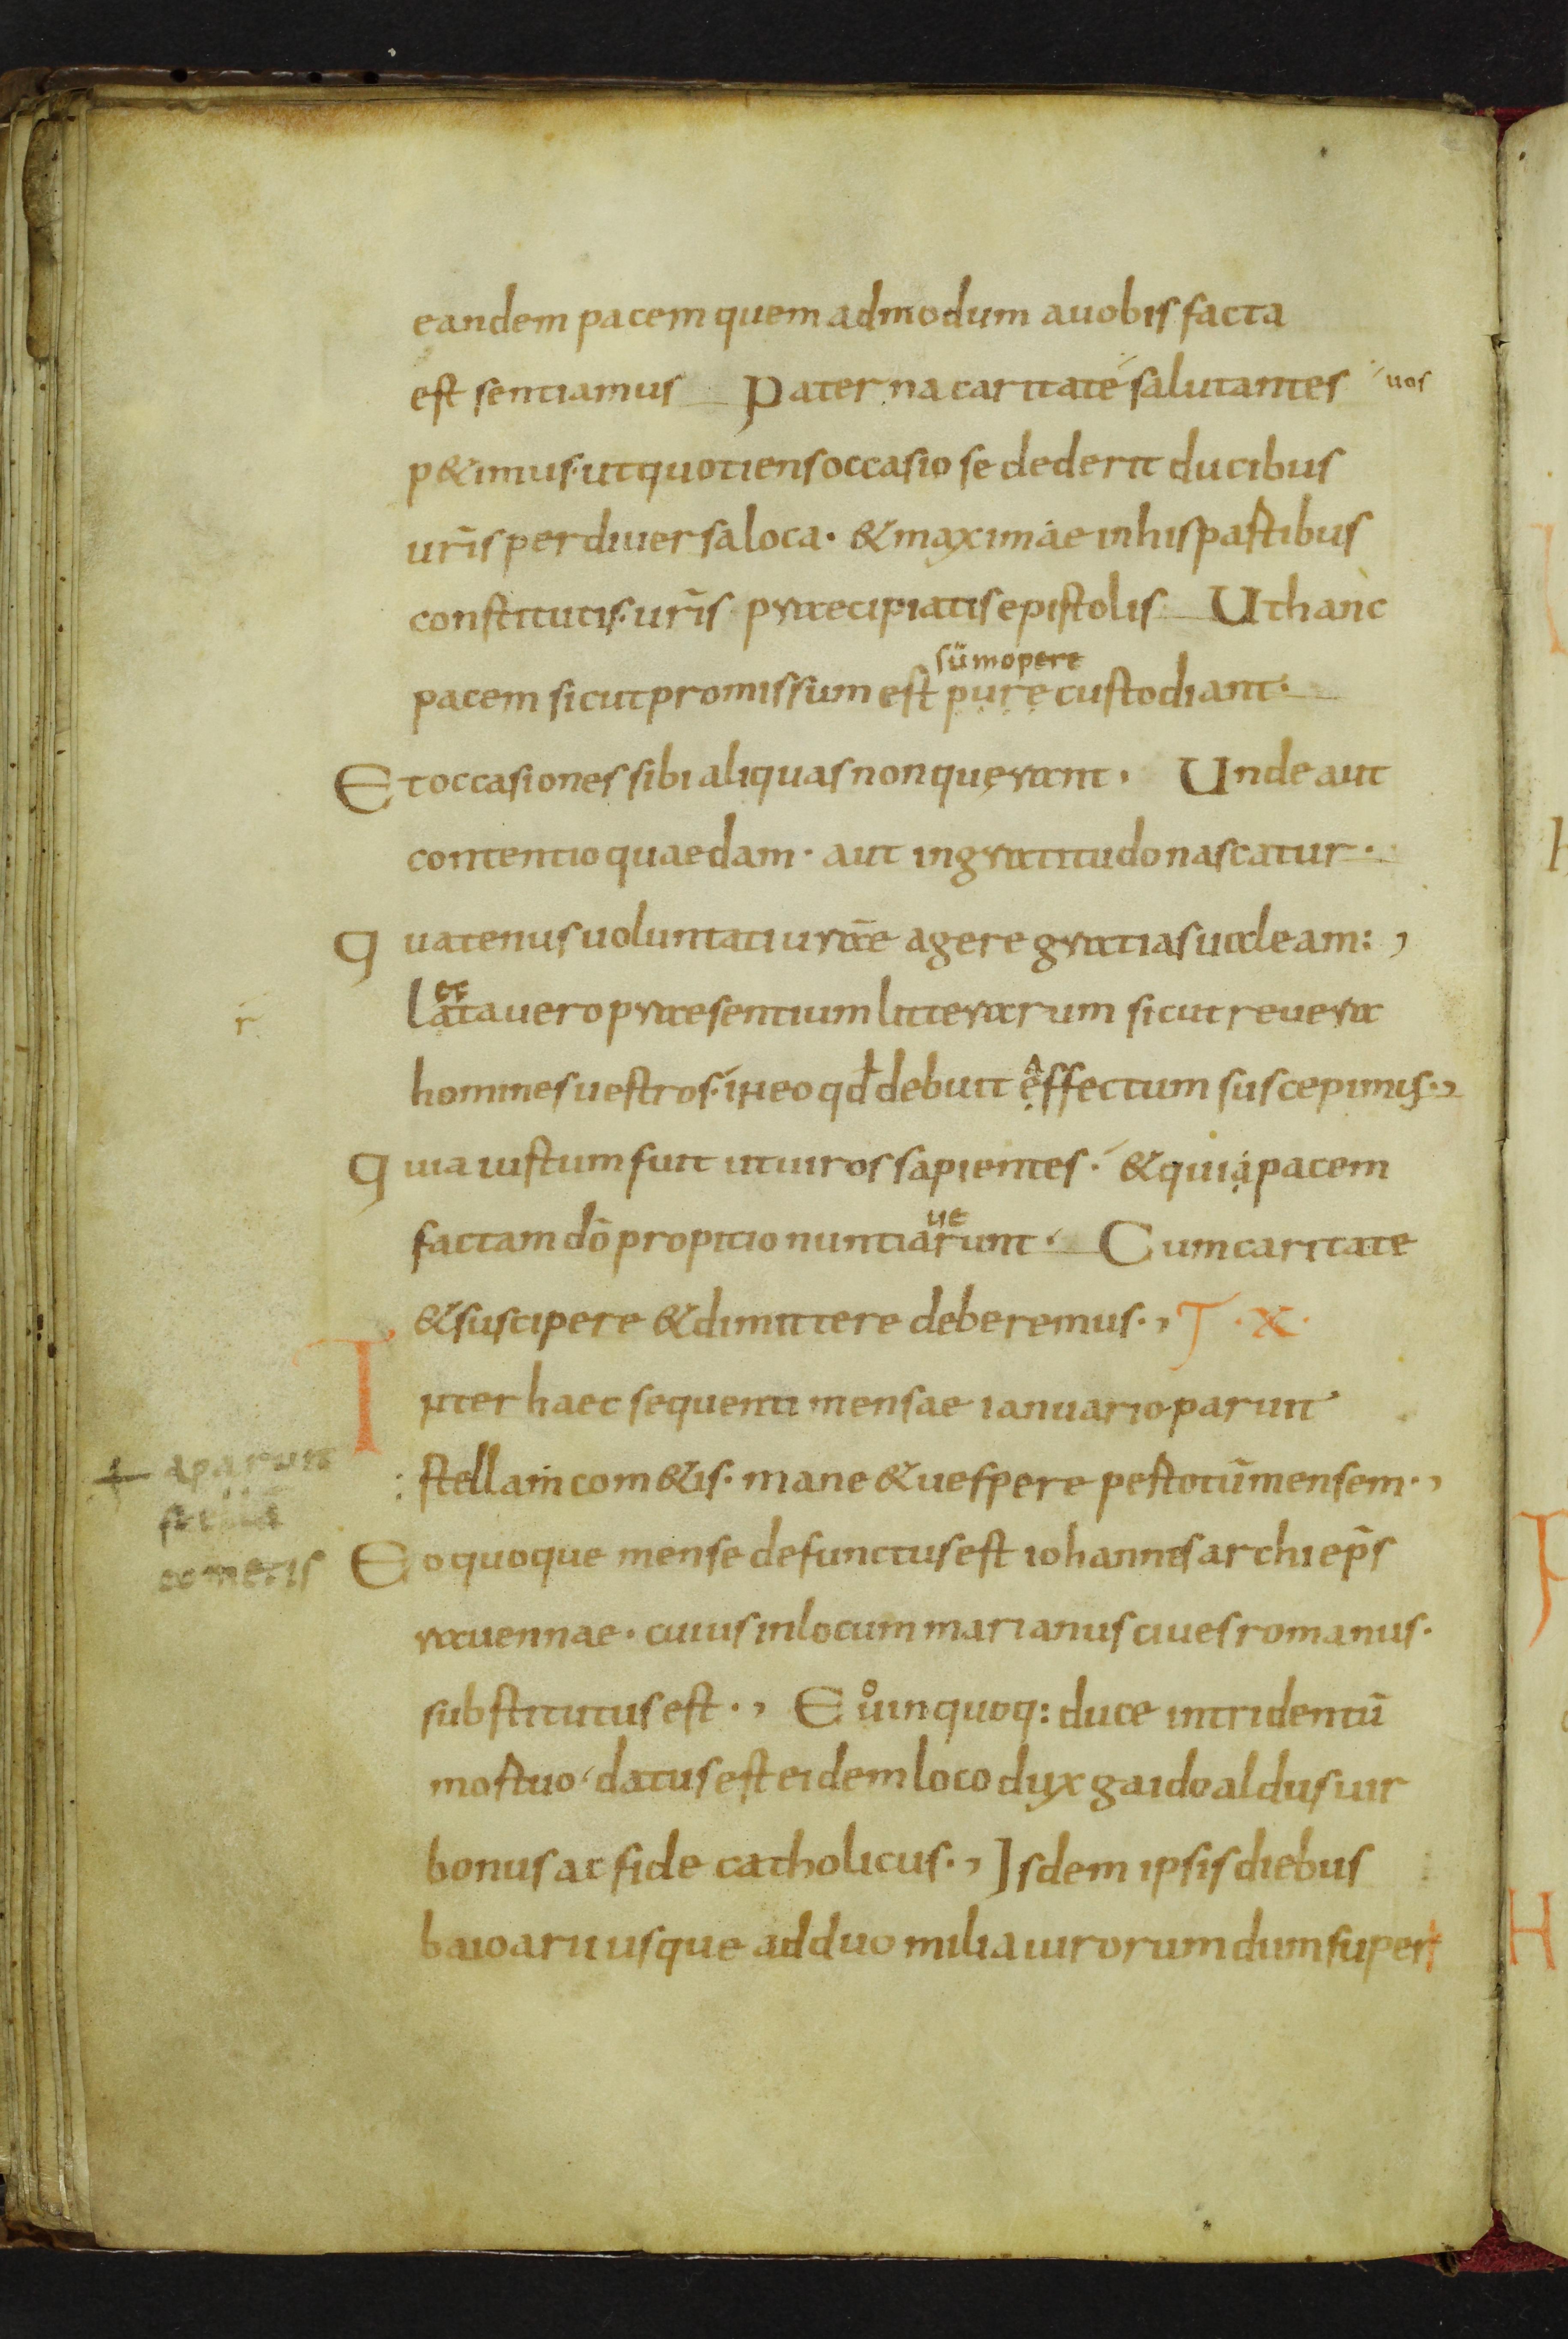 eandem pacem quem admodum a uobis facta
est sentiamus Paterna caritate salutantes uos
p&imus· ut quotiens occasio se dederit ducibus
ur̄is per diuersa loca· & maximae in his partibus
constitutis· ur̄is praecipiatis epistolis Ut hanc
sūmopere
pacem sicut promissum est pure custodiant·
Et occasiones sibi aliquas non querant· Unde aut
contentio quaedam· aut ingratitudo nascatur·
quatenus uoluntati ur̄ae agere gratias ualeam:,
et
r
lata uero praesentium litterarum sicut reuera
homines uestros· in eo qđ debuit effectum suscepimus·,
quia iustum fuit ut uiros sapientes· & quia pacem
ue
factam dō propitio nuntiarunt· Cum caritate
& suscipere & dimittere deberemus·, T·X·
Inter haec sequenti mensae ianuario paruit
+ aparuit
stellam com&is· mane & uespere per totū mensem·,
stellā
Eo quoque mense defunctus est iohannes archiep̄s
cometis
rauennae· cuius in locum marianus ciues romanus·
substitutus est·, Euin quoq: duce in tridentū
mortuo datus est eidem loco dux gaidoaldus uir
bonus ac fide catholicus·, Isdem ipsis diebus
baioarii usque ad duo milia uirorum dum super